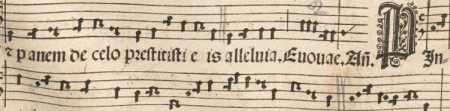 ⁊ panem de celo prestitisti e is alleluia. Euouae. Añ. P In-